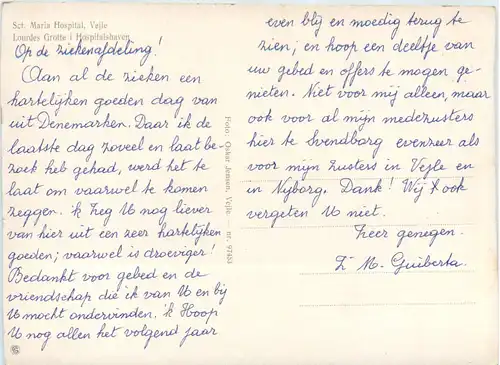 Sct. Maria Hospital, Vejle
Lourdes Grotte i Hospitalshaven
Op de ziekenafdeling!
Aan al de zieken een
hartelijken goeden dag van
uit Denemarken. Daar ik de
laatste dag zoveel en laat be-
zoek heb gehad, werd het te
laat om vaarwel te komen
zeggen. ik zeg U nog liever
van hier uit een zeer hartelijken
goeden; vaarwel is droeviger!
Bedankt voor gebed en de
vriendschap die ik van U en bij
U mocht ondervinden. ik Hoop
U nog allen het volgend jaar
Foto: Oskar Jensen, Vejle — nr. 97453
even blij en moedig terug te
zien; en hoop een deeltje van
uw gebed en offers te mogen ge-
nieten. Niet voor mij alleen, maar
ook voor al mijn medezusters
hier te Svendborg evenzeer als
voor mijn zusters in Vejle en
in Nyborg. Dank! Wij ook
vergeten U niet.
Zeer genegen.
Zr M. Guiberta.